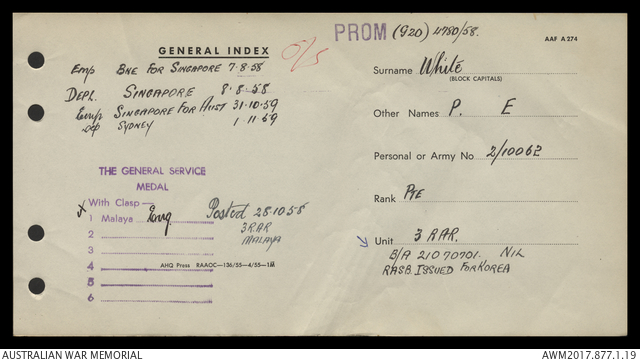 PROM (G20) 4780/58.
AAF A 274
GENERAL INDEX
O/S
Emp BNE FOR SINGAPORE 7.8.58
DEPL. SINGAPORE 8.8.58
Emp SINGAPORE FOR AUST 31.10.59
SYDNEY 1.11.59
Surname White
(BLOCK CAPITALS)
Other Names P. E
Personal or Army No 2/10062
Rank Pte
Unit 3 RAR.
B/A 21070701. NIL
RASB. ISSUED FOR KOREA
THE GENERAL SERVICE
MEDAL
With Clasp
1 Malaya Posted 28.10.58
2 3RAR
MALAYA
3
4
AHQ Press RAAOC—136/55—4/55—1M
5
6
AUSTRALIAN WAR MEMORIAL
AWM2017.877.1.19